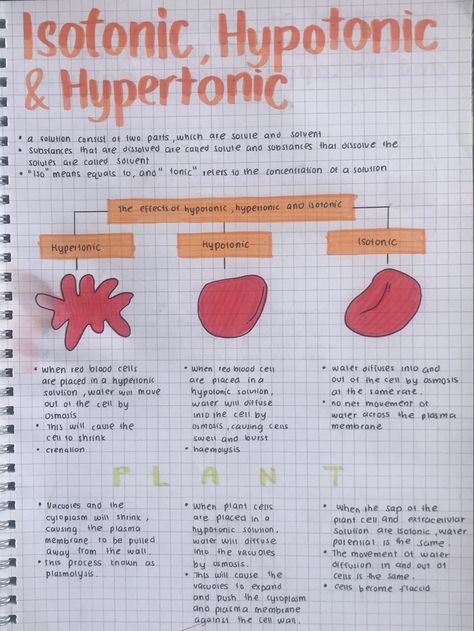 Isotonic, Hypotonic
& Hypertonic.
• a solution consist of two parts, which are solute and solvent
• Substances that are dissolved are called solute and substances that dissolve the
solutes are called solvent
• "Iso" means equals to, and "tonic" refers to the concentration of a solution
The effects of hypotonic, hypertonic and isotonic
Hypertonic
Hypotonic
Isotonic
• When red blood cells
are placed in a hypertonic
solution, water will move
out of the cell by
osmosis
• This will cause the
cell to shrink
• crenation
• When red blood cell
are placed in a
hypotonic solution,
water will diffuse
into the cell by
osmosis, causing cells
swell and burst
• haemolysis
• water diffuses into and
out of the cell by osmosis
at the same rate.
• no net movement of
water across the plasma
membrane
PLANT
• Vacuoles and the
cytoplasm will shrink,
causing the plasma
membrane to be pulled
away from the wall.
• this process known as
plasmolysis.
• When plant cells
are placed in a
hypotonic solution,
water will diffuse
into the vacuoles
by osmosis.
• This will cause the
vacuoles to expand
and push the cytoplasm
and plasma membrane
against the cell wall.
• When the sap of the
plant cell and extracellular
solution are isotonic, water
potential is the same.
• The movement of water
diffusion in and out of
cells is the same.
• cells become flaccid